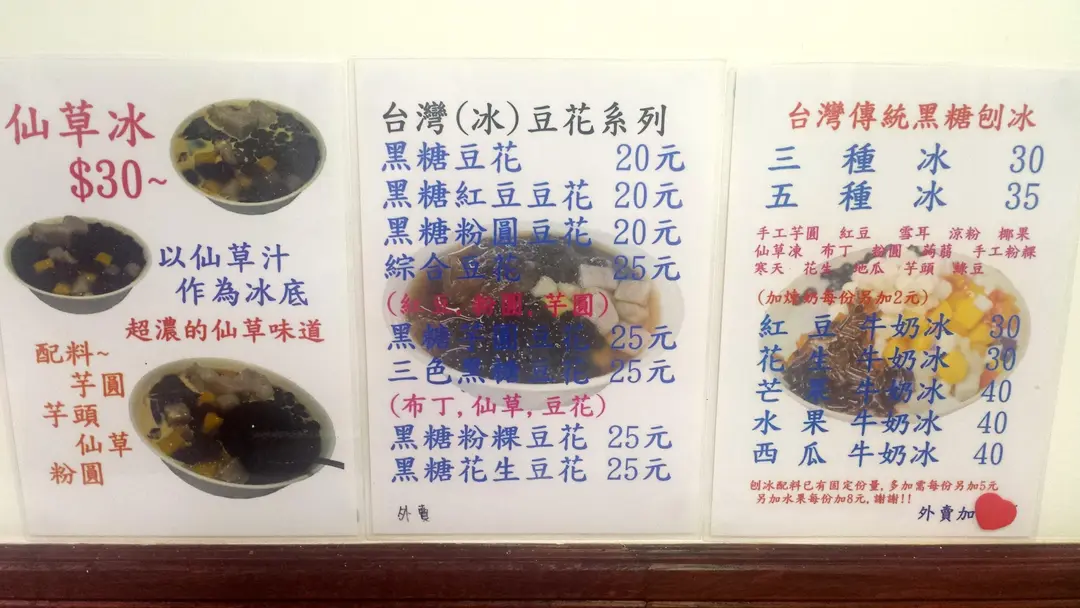 仙草冰
$30~
以仙草汁
作為冰底
超濃的仙草味道
配料~
芋圓
芋頭
仙草
粉圓
台灣(冰)豆花系列
黑糖豆花 20元
黑糖紅豆豆花 20元
黑糖粉圓豆花 20元
綜合豆花 25元
(紅豆,粉圓,芋圓)
黑糖芋圓豆花 25元
三色黑糖豆花 25元
(布丁,仙草,豆花)
黑糖粉粿豆花 25元
黑糖花生豆花 25元
外賣
台灣傳統黑糖刨冰
三種冰 30
五種冰 35
手工芋圓 紅豆 雪耳 涼粉 椰果
仙草凍 布丁 粉圓 蒟蒻 手工粉粿
寒天 花生 地瓜 芋頭 綠豆
(加煉奶每份另加2元)
紅豆牛奶冰 30
花生牛奶冰 30
芒果牛奶冰 40
水果牛奶冰 40
西瓜牛奶冰 40
刨冰配料已有固定份量,多加需每份另加5元
另加水果每份加8元,謝謝!!
外賣加